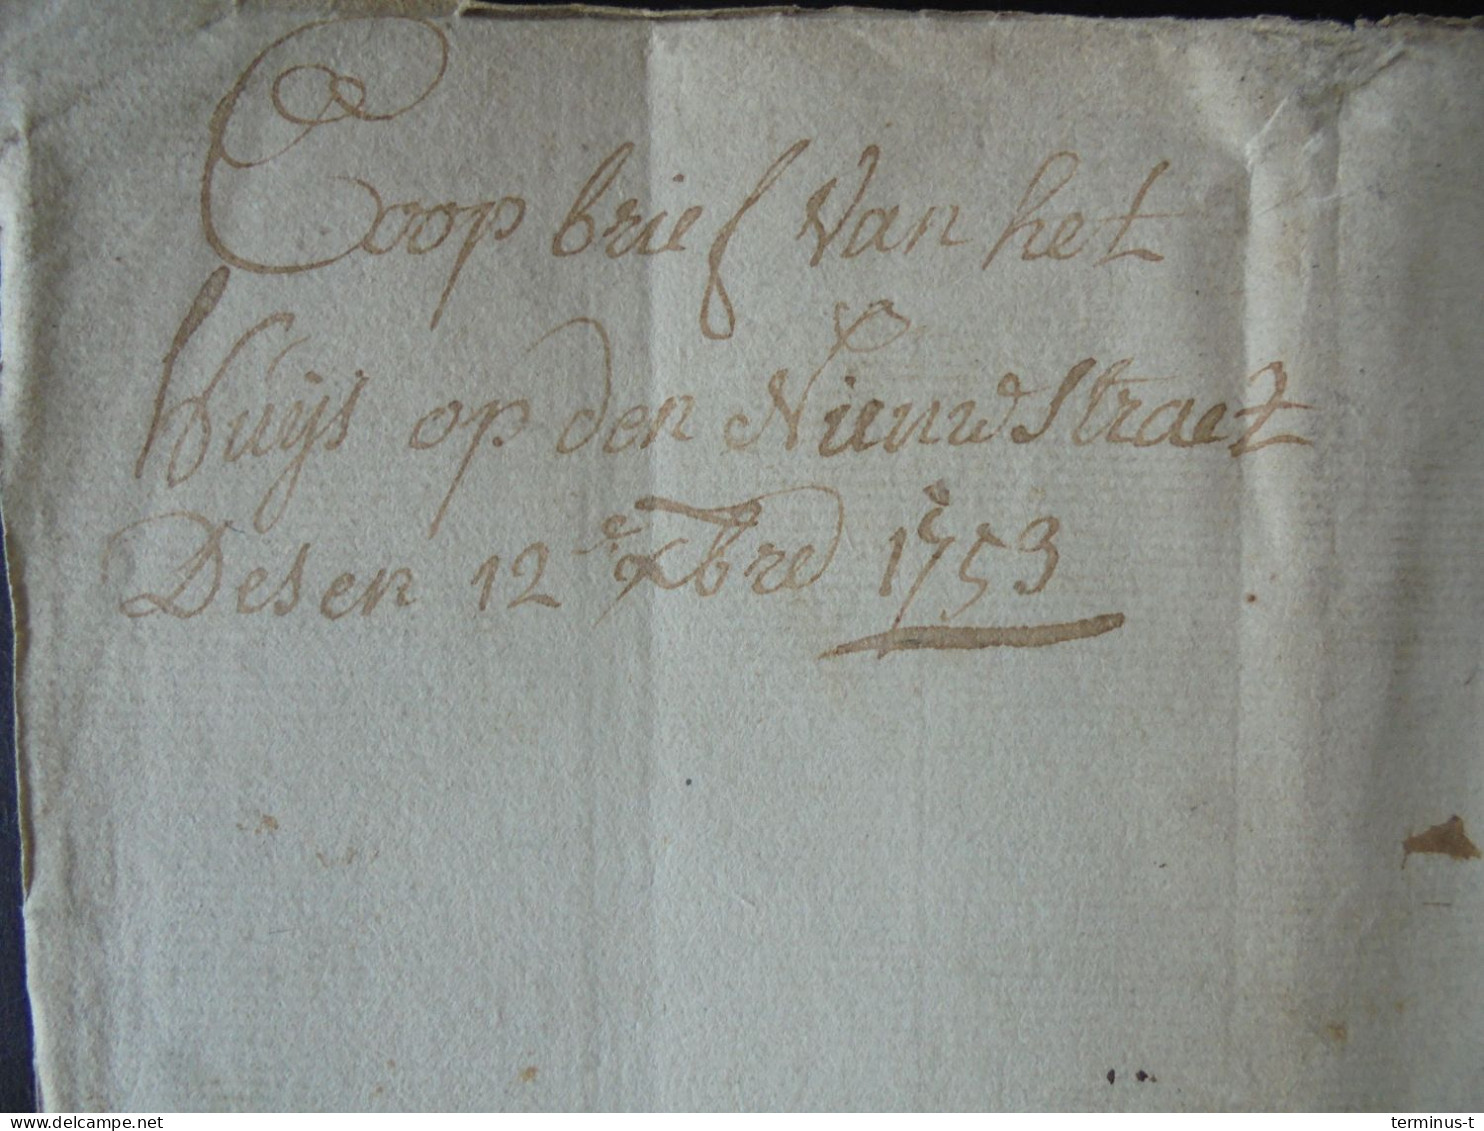 Coop brief van het
huijs op den Nieuwstraet
Desen 12e xbre 1753
delcampe.net
terminus-t